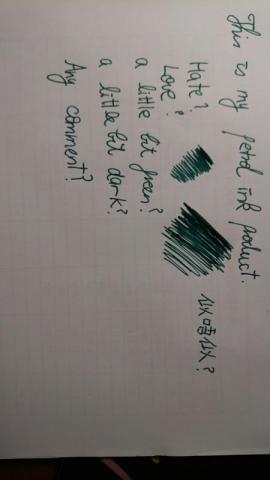 This is my petrol ink product.
Hate?
Love?
a little bit green?
a little bit dark?
Any comment?
似唔似?